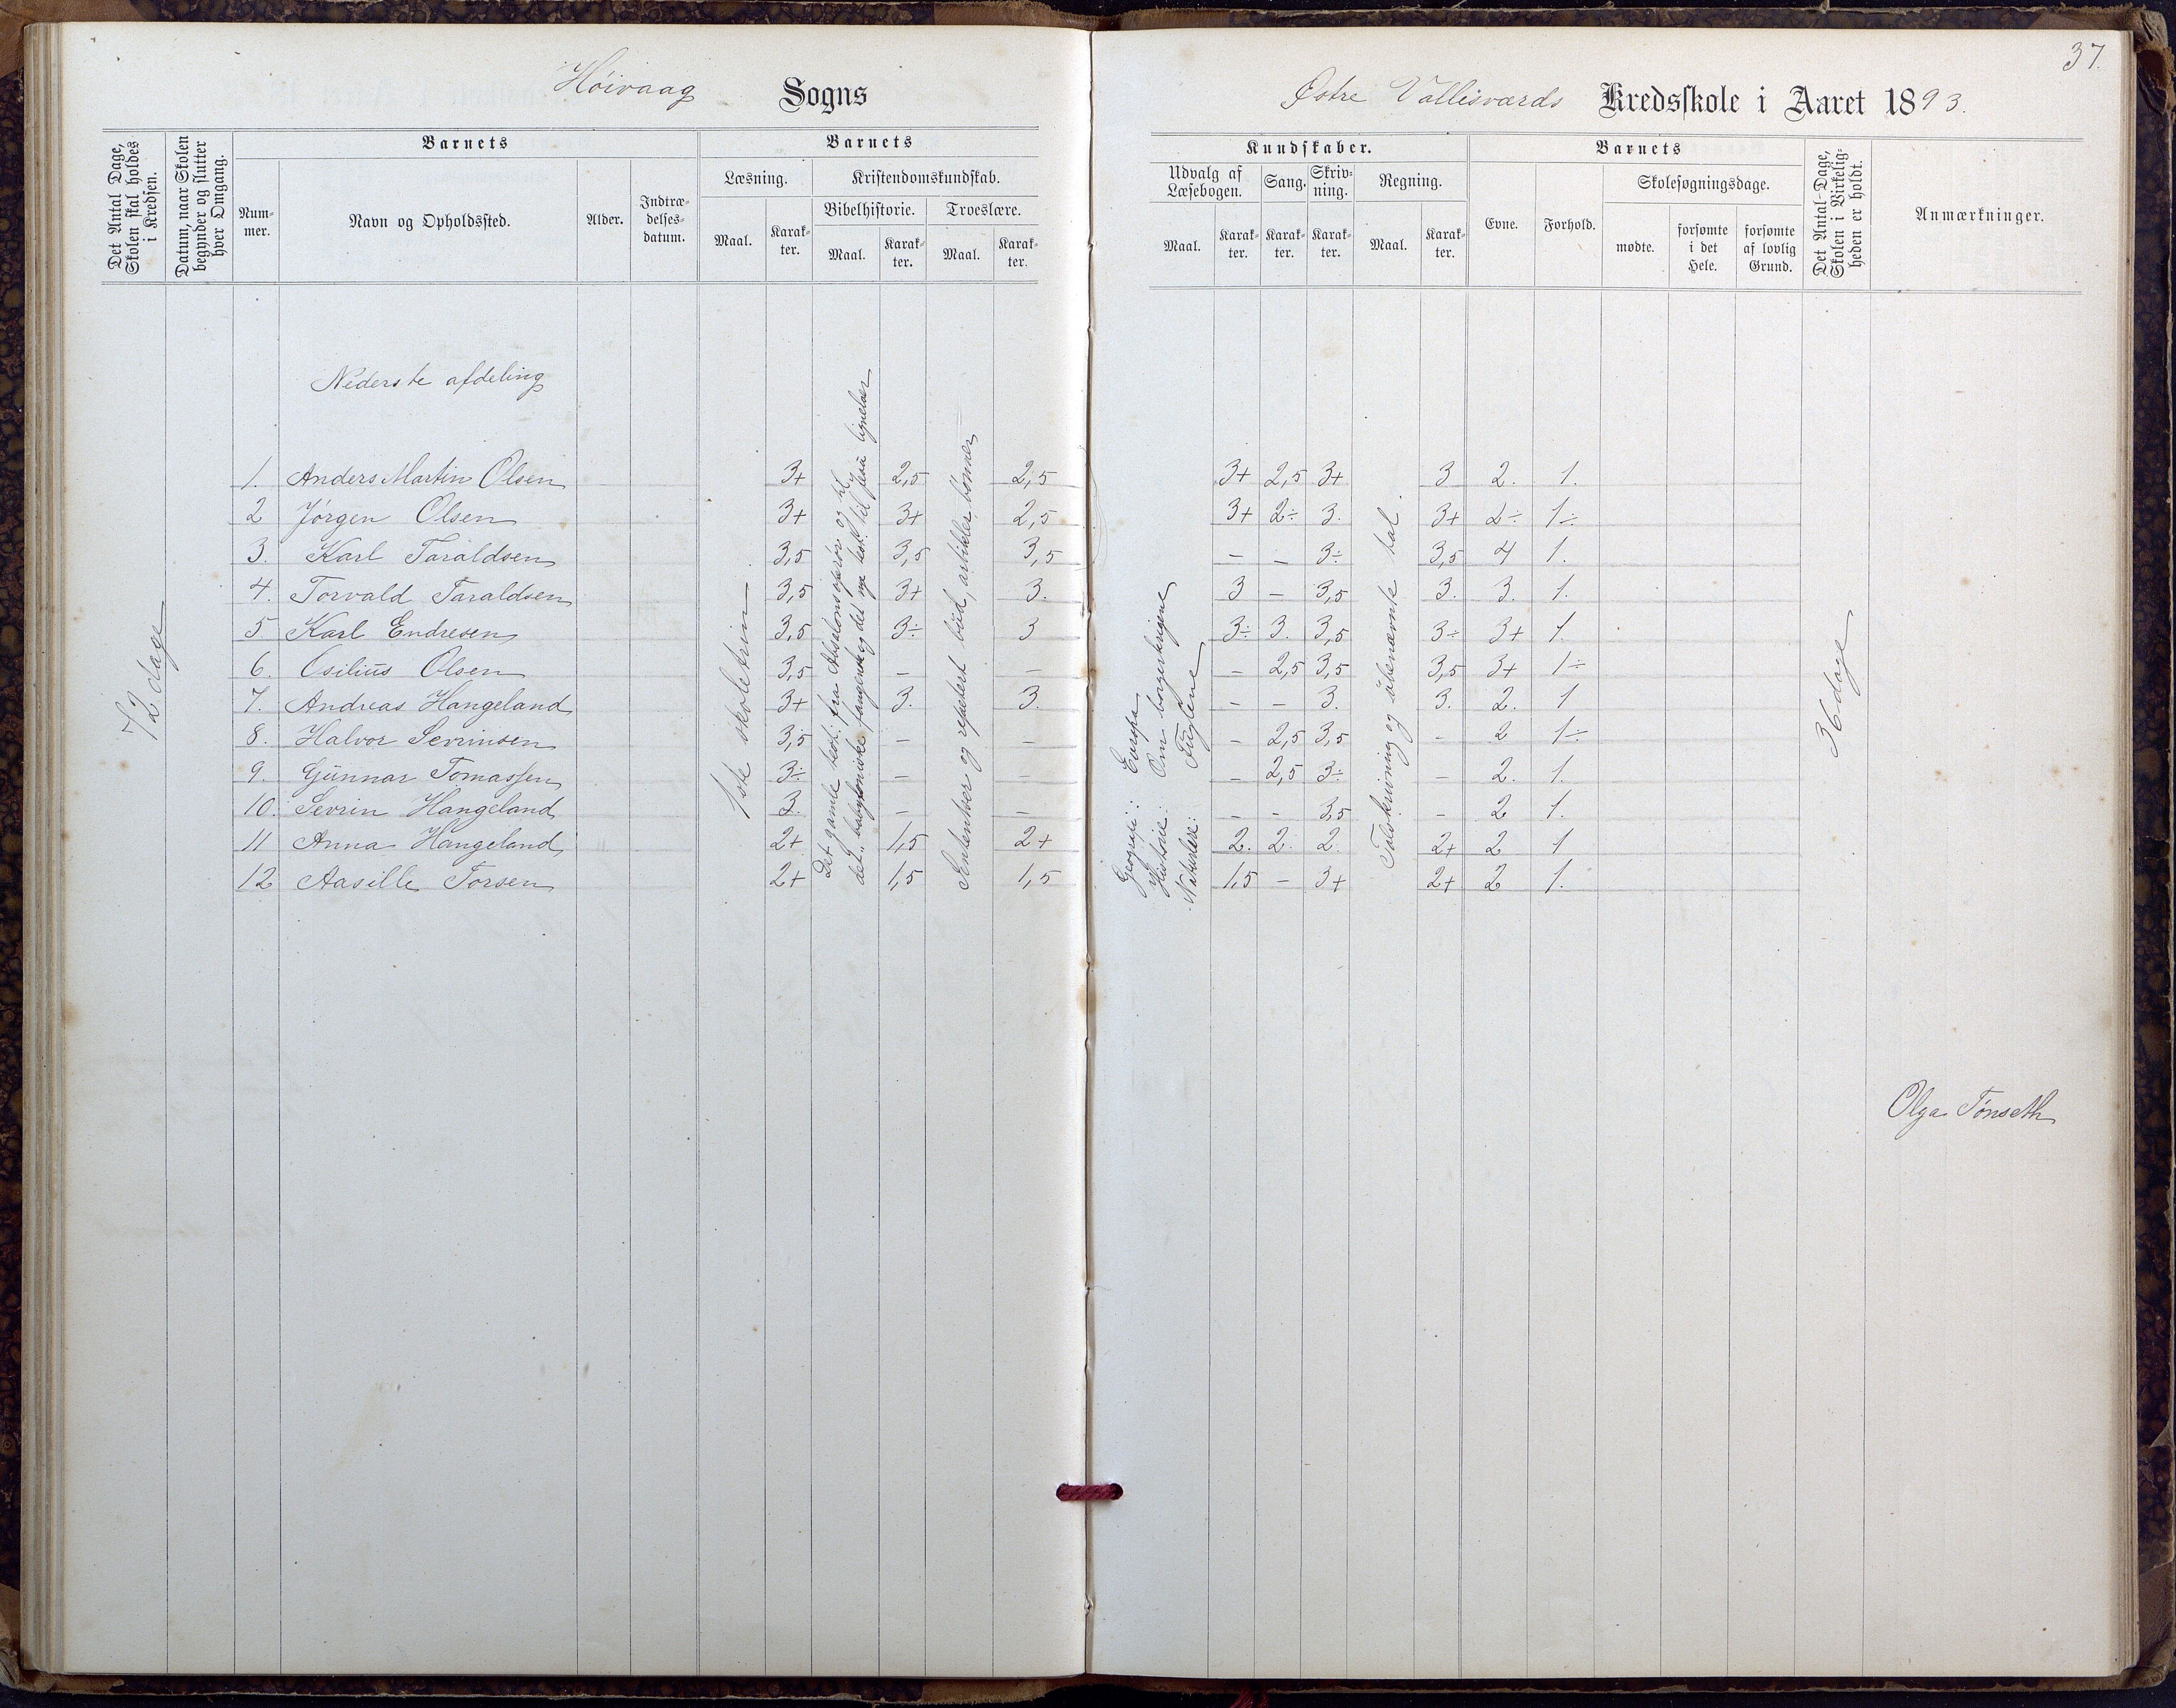 37.
Höivaag Sogns
Østre Vallesværds Kredsskole i Aaret 1893.
Det Antal Dage, Skolen skal holdes i Kredsen.
Datum, naar Skolen begynder og slutter hver Omgang.
Barnets
Num-mer.
Navn og Opholdssted.
Alder.
Indtræ-delses-datum.
Barnets
Læsning.
Maal.
Karak-ter.
Kristendomskundskab.
Bibelhistorie.
Maal.
Karak-ter.
Troeslære.
Maal.
Karak-ter.
Kundskaber.
Udvalg af Læsebogen.
Maal.
Karak-ter.
Sang.
Karak-ter.
Skriv-ning.
Karak-ter.
Regning.
Maal.
Karak-ter.
Barnets
Evne.
Forhold.
Skolesøgningsdage.
mødte.
forsømte i det Hele.
forsømte af lovlig Grund.
Det Antal Dage, Skolen i Virkelig-heden er holdt.
Anmærkninger.
Nederste afdeling
72 dage
1ste skoletrin
Det gamle test: fra Absalons oprør og til
det babyloniske fangensk og det nye test. til Jesu lignelser
Enkenttser og repetert bud, artikler, bønner
Geografi: Europa
Historie: Om borgerkrigene
Naturlære: Fuglene
Talskrivning og übenævnte tal.
36 dage
1. Anders Martin Olsen 3+ 2,5 2,5 3+ 2,5 3+ 3 2. 1.
2 Jörgen Olsen 3+ 3+ 2,5 3+ 2÷ 3. 3+ 2÷ 1÷
3. Karl Taraldsen 3,5 3,5 3,5 – – 3÷ 3,5 4 1.
4. Torvald Taraldsen 3,5 3+ 3. 3 – 3,5 3. 3. 1.
5 Karl Endresen 3,5 3÷ 3 3÷ 3. 3,5 3÷ 3+ 1.
6. Osilius Olsen 3,5 – – – 2,5 3,5 3,5 3+ 1÷
7. Andreas Hangeland 3+ 3. 3. – – 3. 3. 2. 1
8. Halvor Sevrinsen 3,5 – – – 2,5 3,5 – 2 1÷
9. Günnar Tomassen 3÷ – – – 2,5 3÷ – 2. 1.
10. Sevrin Hangeland 3. – – – – 3,5 – 2 1.
11 Anna Hangeland 2+ 1,5 2+ 2. 2. 2. 2+ 2 1
12 Aasille Torsen 2+ 1,5 1,5 1,5 – 3+ 2+ 2 1.
Olga Tönseth